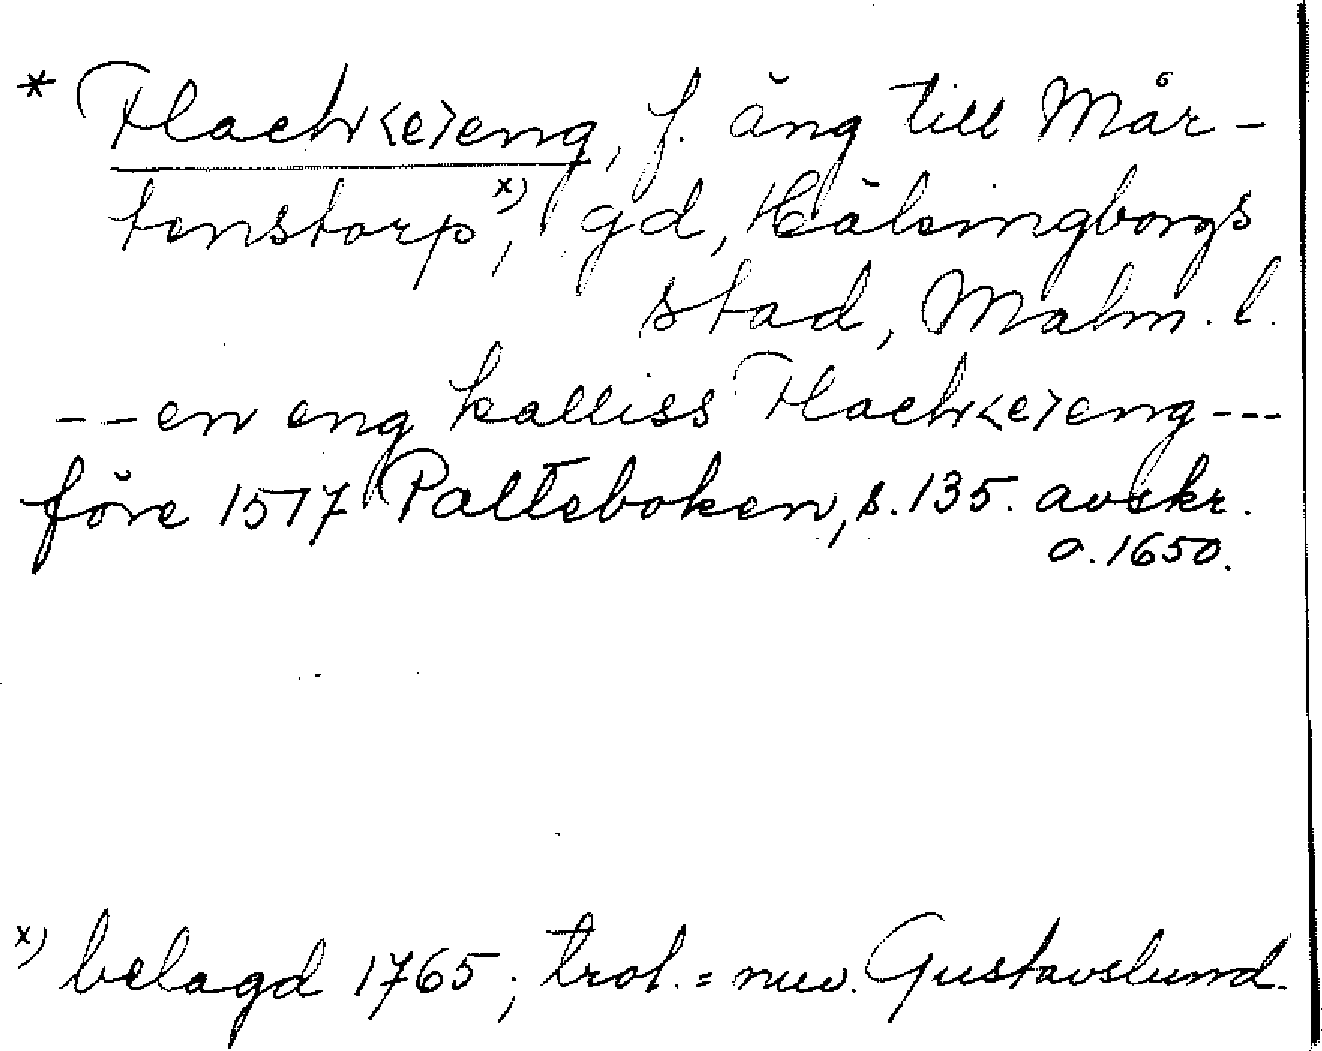 * Flackr<e>eng, f. äng till Mår-
tenstorp, x) gd, Hälsingborgs
stad, Malm. l.
--en eng kalliss Flackr<e>eng---
före 1517 Palteboken, s. 135. avskr.
o. 1650.
x) belagd 1765; trol. = nuv. Gustavslund.